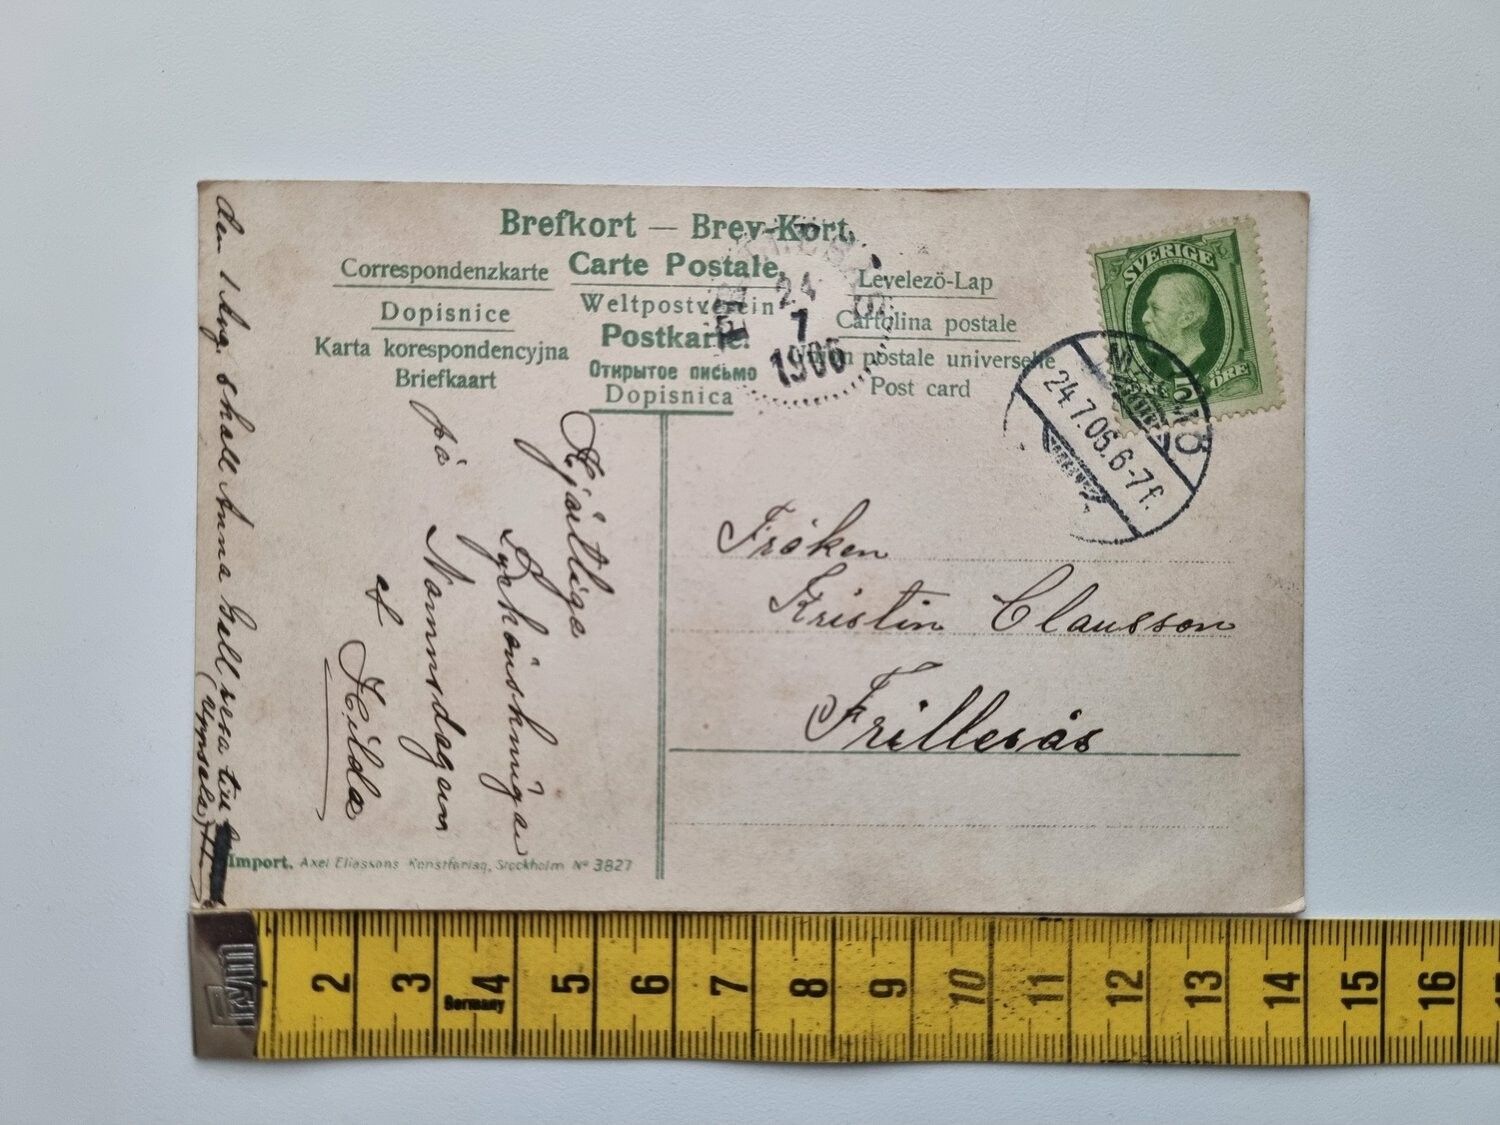 Brefkort — Brev-Kort.
Correspondenzkarte
Carte Postale.
Levelezö-Lap
Dopisnice
Weltpostverein
Cartolina postale
Karta korespondencyjna
Postkarte.
Union postale universelle
Briefkaart
Открытое письмо
Post card
Dopisnica
24
7
1906
SVERIGE
5
ÖRE
MALMÖ
24.7.06.6-7f.
Hjärtliga
Lyckönskningar
på Namnsdagen
af Hilda
Fröken
Kristin Clausson
Frillesås
den 1 Aug. skall Anna Gell resa till
(Uppsala)
Import. Axel Eliassons Konstförlag, Stockholm No 3827
2 3 4 5 6 7 8 9 10 11 12 13 14 15 16
Germany